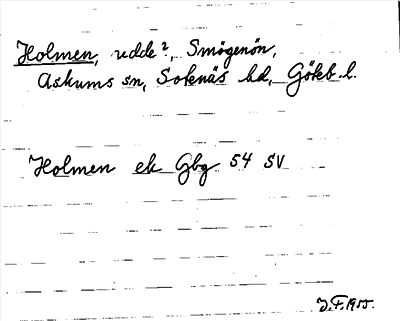 Holmen, udde?, Smögenön,
Askums sn, Sotenäs hd, Göteb. l.
Holmen ek Gbg 54 SV
J.F. 1955.